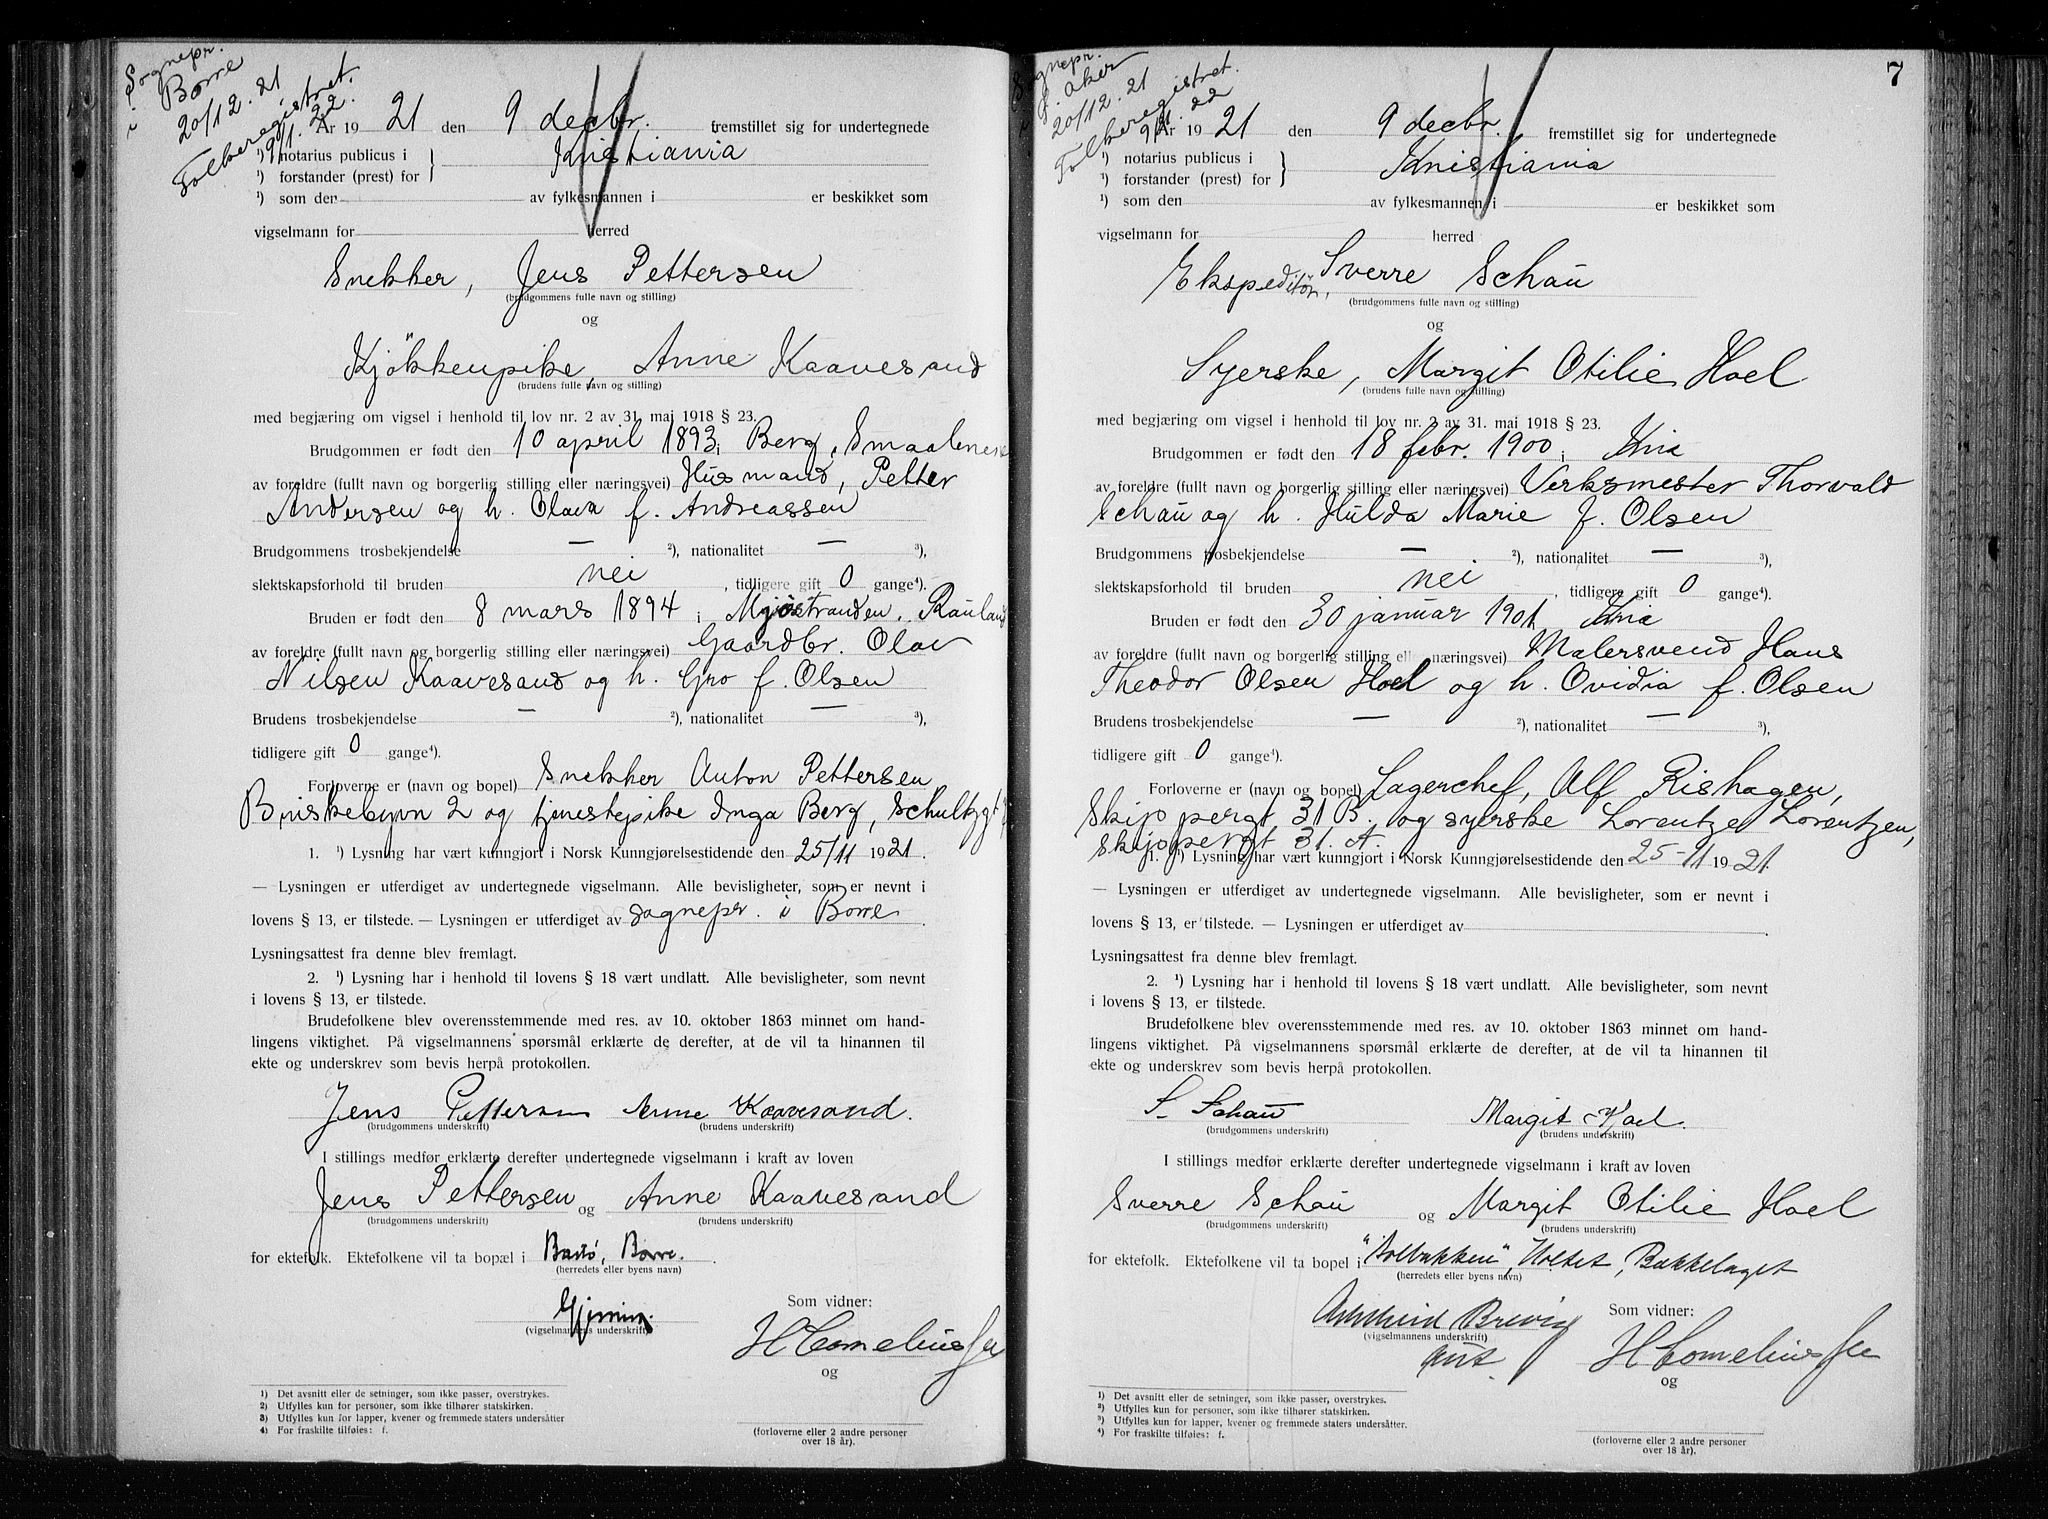 Sognepr.
i Borre
20/12.21
Folkeregistret.
9/1.22.
År 1921 den 9 decbr. fremstillet sig for undertegnede
¹) notarius publicus i } Kristiania
¹) forstander (prest) for }
¹) som den av fylkesmannen i er beskikket som
vigselmann for herred
Snekker, Jens Pettersen
(brudgommens fulle navn og stilling)
og
Kjökkenpike, Anne Kaavesand
(brudens fulle navn og stilling)
med begjæring om vigsel i henhold til lov nr. 2 av 31. mai 1918 § 23.
Brudgommen er født den 10 april 1893 i Berg, Smaalenene
av foreldre (fullt navn og borgerlig stilling eller næringsvei) Husmand, Petter
Andersen og h. Olava f. Andreassen
Brudgommens trosbekjendelse — ²), nationalitet — ³),
slektskapsforhold til bruden nei, tidligere gift 0 gange⁴).
Bruden er født den 8 mars 1894 i Mjøstranden, Rauland
av foreldre (fullt navn og borgerlig stilling eller næringsvei) Gaardbr. Olav
Nilsen Kaavesand og h. Gro f. Olsen
Brudens trosbekjendelse — ²), nationalitet — ³),
tidligere gift 0 gange⁴).
Forloverne er (navn og bopel) Snekker Anton Pettersen,
Briskebyvn 2 og tjenestepike Inga Berg, Schultzgt
1. ¹) Lysning har vært kunngjort i Norsk Kunngjørelsestidende den 25/11 1921.
— Lysningen er utferdiget av undertegnede vigselmann. Alle bevisligheter, som er nevnt i
lovens § 13, er tilstede. — Lysningen er utferdiget av sognepr. i Borre.
Lysningsattest fra denne blev fremlagt.
2. ¹) Lysning har i henhold til lovens § 18 vært undlatt. Alle bevisligheter, som nevnt
i lovens § 13, er tilstede.
Brudefolkene blev overensstemmende med res. av 10. oktober 1863 minnet om hand-
lingens viktighet. På vigselmannens spørsmål erklærte de derefter, at de vil ta hinannen til
ekte og underskrev som bevis herpå protokollen.
Jens Pettersen Anne Kaavesand.
(brudgommens underskrift) (brudens underskrift)
I stillings medfør erklærte derefter undertegnede vigselmann i kraft av loven
Jens Pettersen og Anne Kaavesand
(brudgommens underskrift) (brudens underskrift)
for ektefolk. Ektefolkene vil ta bopæl i Bastø, Borre.
(herredets eller byens navn)
Som vidner:
(vigselmannens underskrift)
H Cornelius
og
(forloverne eller 2 andre personer
over 18 år).
1) Det avsnitt eller de setninger, som ikke passer, overstrykes.
2) Utfylles kun for personer, som ikke tilhører statskirken.
3) Utfylles kun for lapper, kvener og fremmede staters undersåtter
4) For fraskilte tilføies: f.
7
Sognepr.
i Ø. Aker
20/12.21
Folkeregistret.
9/1.22
År 1921 den 9 decbr. fremstillet sig for undertegnede
¹) notarius publicus i } Kristiania
¹) forstander (prest) for }
¹) som den av fylkesmannen i er beskikket som
vigselmann for herred
Ekspeditör, Sverre Schau
(brudgommens fulle navn og stilling)
og
Syerske, Margit Otilie Hoel
(brudens fulle navn og stilling)
med begjæring om vigsel i henhold til lov nr. 2 av 31. mai 1918 § 23.
Brudgommen er født den 18 febr. 1900 i Kria
av foreldre (fullt navn og borgerlig stilling eller næringsvei) Verksmester Thorvald
Schau og h. Hulda Marie f. Olsen
Brudgommens trosbekjendelse — ²), nationalitet — ³),
slektskapsforhold til bruden nei, tidligere gift 0 gange⁴).
Bruden er født den 30 januar 1901 i Kria
av foreldre (fullt navn og borgerlig stilling eller næringsvei) Malersvend Hans
Theodor Olsen Hoel og h. Ovidia f. Olsen
Brudens trosbekjendelse — ²), nationalitet — ³),
tidligere gift 0 gange⁴).
Forloverne er (navn og bopel) Lagerchef, Alf Rishagen,
Skippergt 31 B. og syerske Lorentze Lorentzen,
Skippergt 31. A.
1. ¹) Lysning har vært kunngjort i Norsk Kunngjørelsestidende den 25-11 1921.
— Lysningen er utferdiget av undertegnede vigselmann. Alle bevisligheter, som er nevnt i
lovens § 13, er tilstede. — Lysningen er utferdiget av
Lysningsattest fra denne blev fremlagt.
2. ¹) Lysning har i henhold til lovens § 18 vært undlatt. Alle bevisligheter, som nevnt
i lovens § 13, er tilstede.
Brudefolkene blev overensstemmende med res. av 10. oktober 1863 minnet om hand-
lingens viktighet. På vigselmannens spørsmål erklærte de derefter, at de vil ta hinannen til
ekte og underskrev som bevis herpå protokollen.
S. Schau Margit Hoel.
(brudgommens underskrift) (brudens underskrift)
I stillings medfør erklærte derefter undertegnede vigselmann i kraft av loven
Sverre Schau og Margit Otilie Hoel
(brudgommens underskrift) (brudens underskrift)
for ektefolk. Ektefolkene vil ta bopel i "Solbakken", Holtet, Bækkelaget
(herredets eller byens navn)
Som vidner:
Brevig
(vigselmannens underskrift)
H Cornelius
og
(forloverne eller 2 andre personer
over 18 år).
1) Det avsnitt eller de setninger, som ikke passer, overstrykes.
2) Utfylles kun for personer, som ikke tilhører statskirken.
3) Utfylles kun for lapper, kvener og fremmede staters undersåtter.
4) For fraskilte tilføies: f.